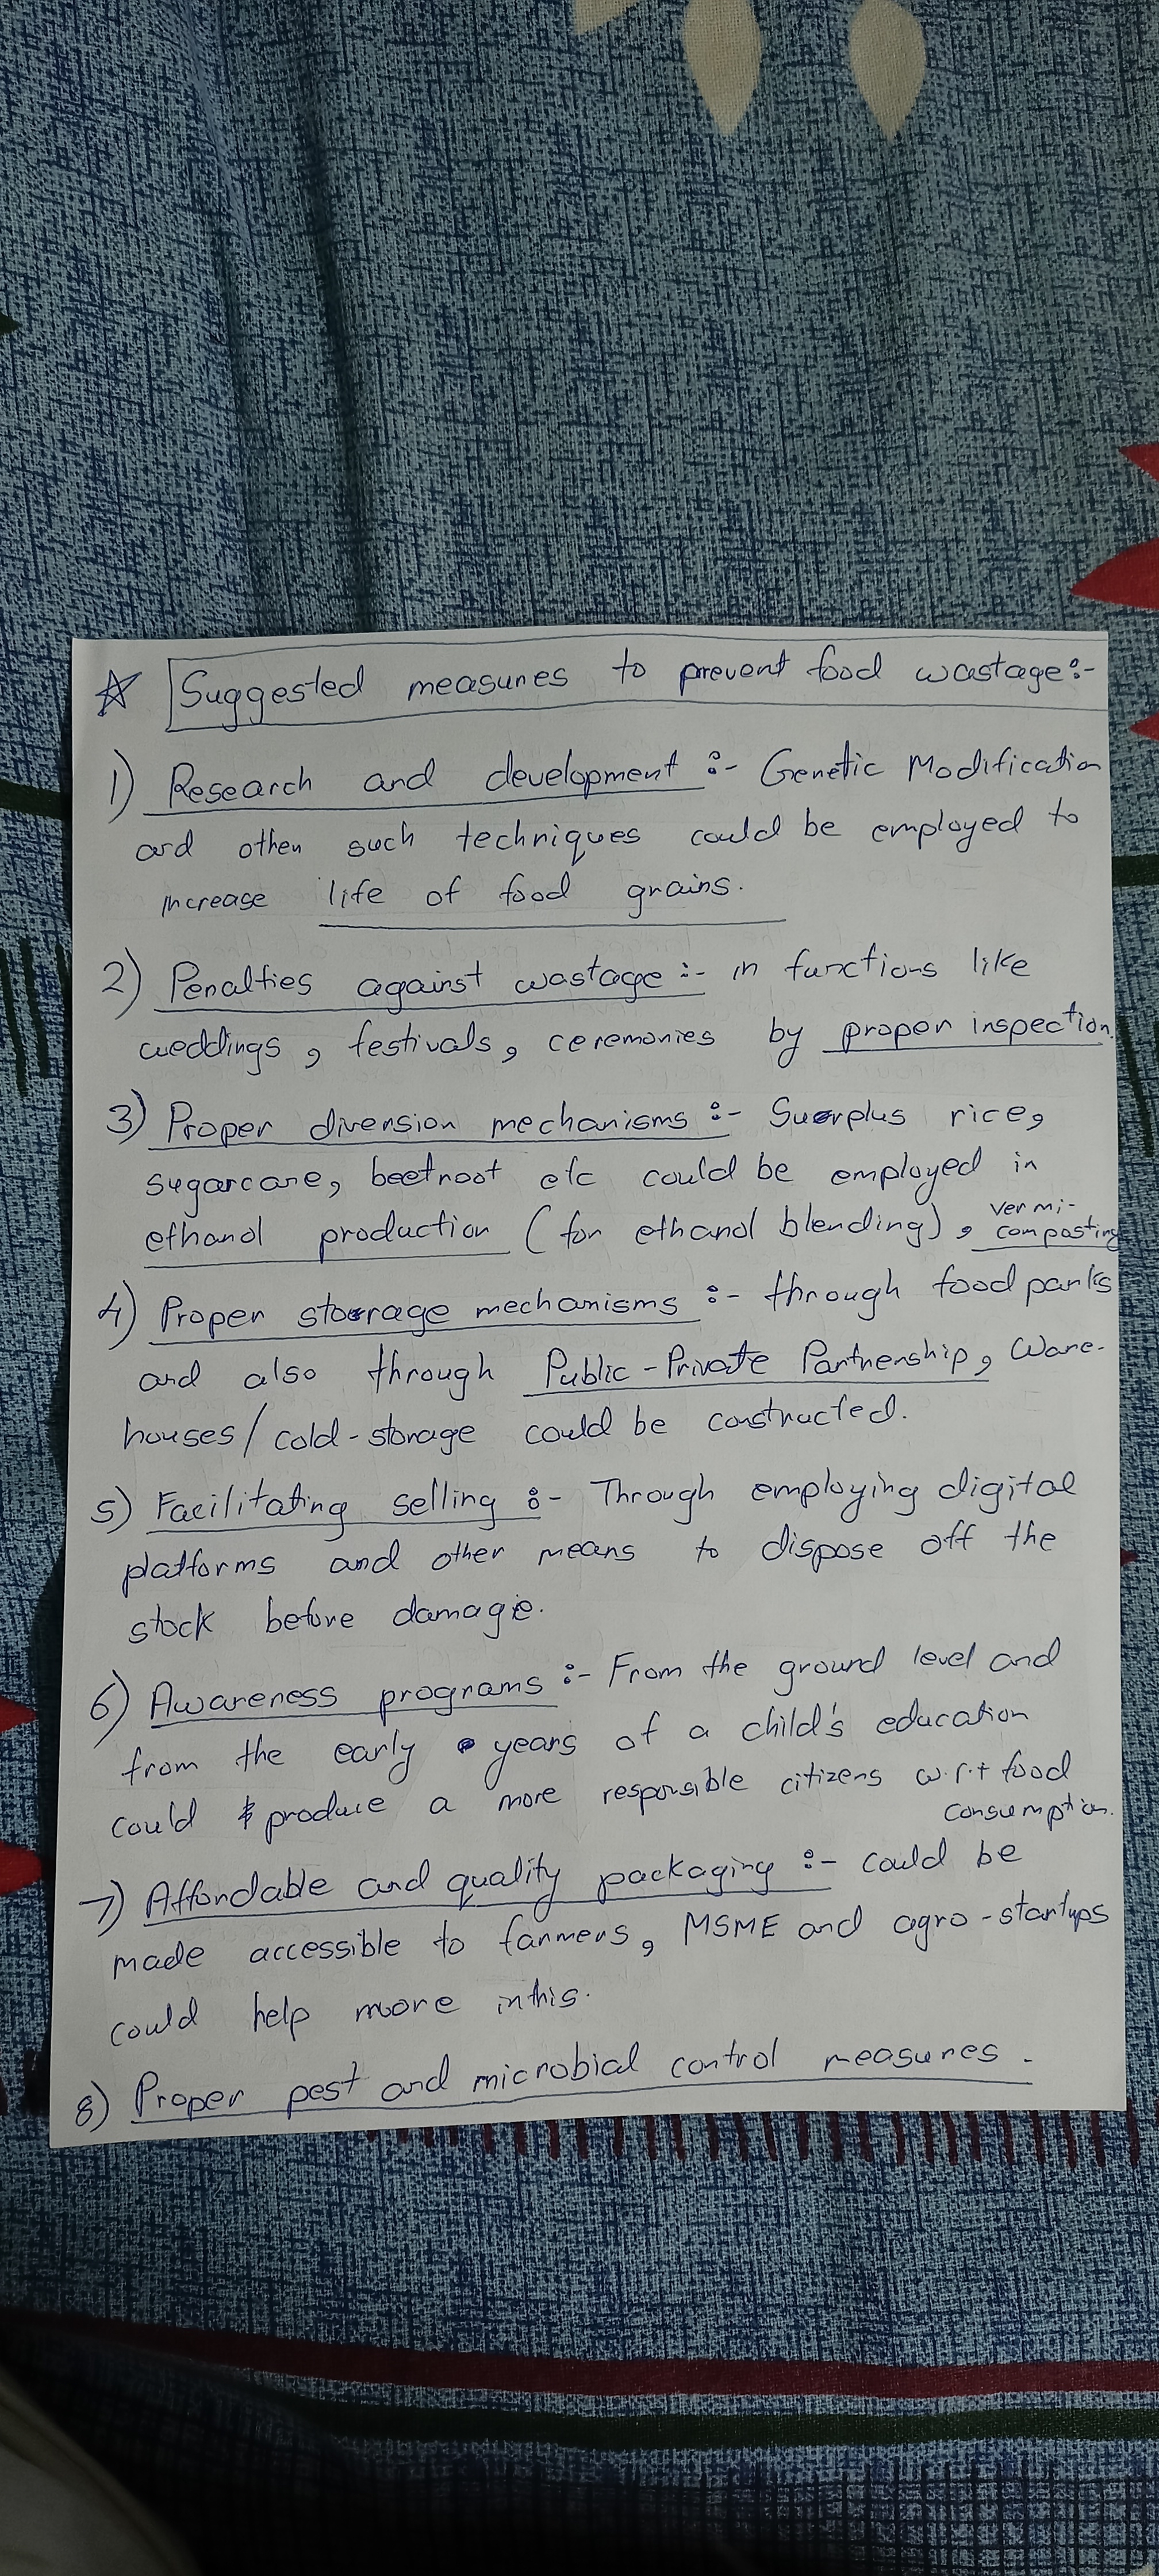 ☆ Suggested measures to prevent food wastage:-
1) Research and development :- Genetic Modification
and other such techniques could be employed to
increase life of food grains.
2) Penalties against wastage :- in functions like
weddings, festivals, ceremonies by proper inspection.
3) Proper diversion mechanisms :- Surplus rice,
sugarcane, beetroot etc could be employed in
ethanol production (for ethanol blending), vermi-
composting
4) Proper storage mechanisms :- through food parks
and also through Public-Private Partnership, Ware-
houses/cold-storage could be constructed.
5) Facilitating selling :- Through employing digital
platforms and other means to dispose off the
stock before damage.
6) Awareness programs :- From the ground level and
from the early years of a child's education
could produce a more responsible citizens w.r.t food
consumption.
7) Affordable and quality packaging :- could be
made accessible to farmers, MSME and agro-startups
could help more in this.
8) Proper pest and microbial control measures.